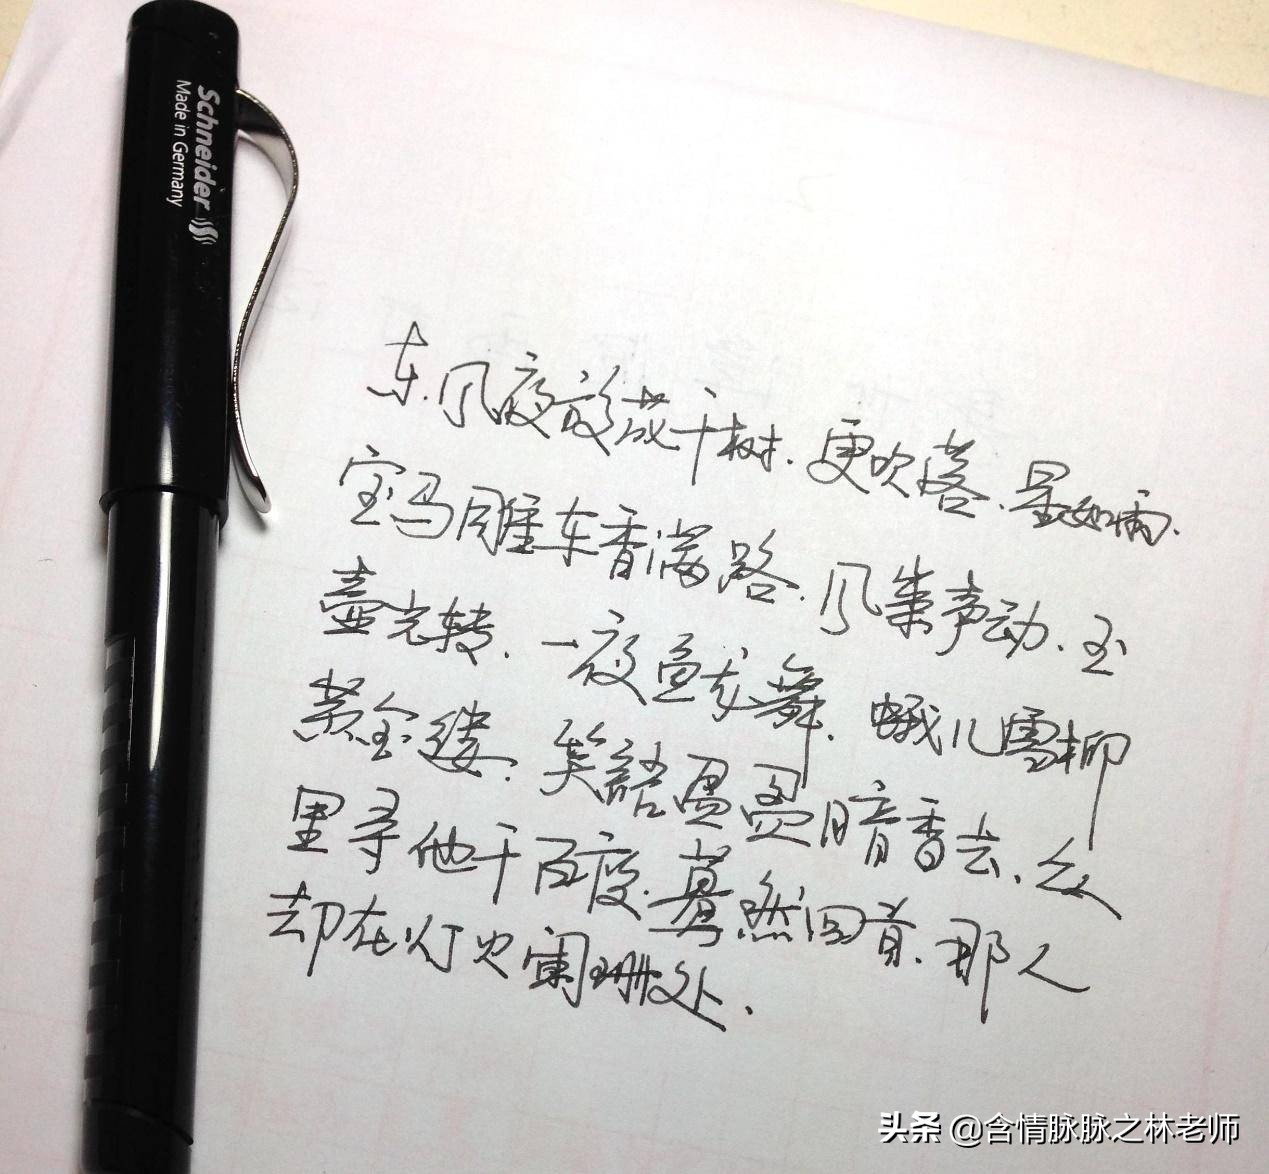 Schneider
Made in Germany
东风夜放花千树.更吹落.星如雨.
宝马雕车香满路.风箫声动.玉
壶光转.一夜鱼龙舞.蛾儿雪柳
黄金缕.笑語盈盈暗香去.众
里寻他千百度.蓦然回首.那人
却在灯火阑珊处.
头条 @含情脉脉之林老师